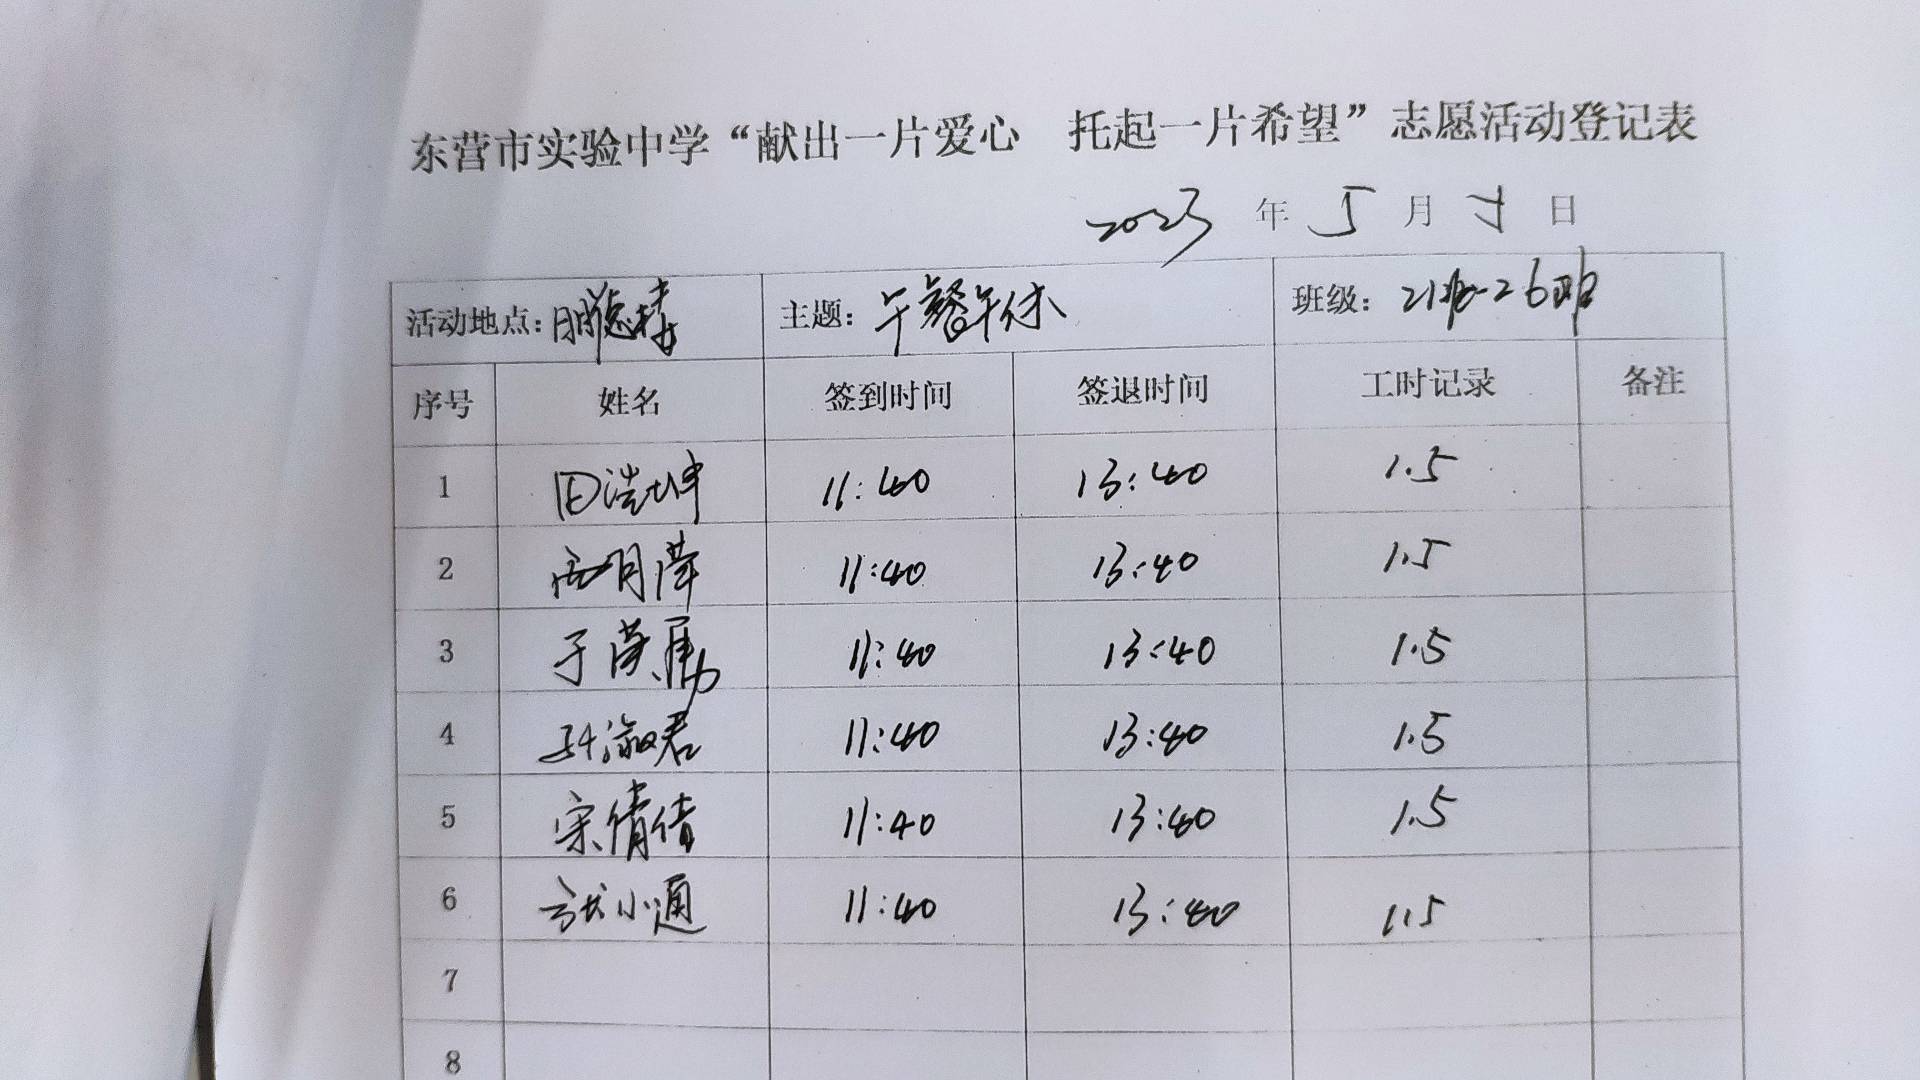 东营市实验中学“献出一片爱心 托起一片希望”志愿活动登记表
2023 年 5 月 5 日
活动地点：明德楼 主题：午餐午休 班级：21班-26班
序号 姓名 签到时间 签退时间 工时记录 备注
1 田浩坤 11:40 13:40 1.5
2 月萍 11:40 13:40 1.5
3 于 11:40 13:40 1.5
4 孙淑君 11:40 13:40 1.5
5 宋倩倩 11:40 13:40 1.5
6 小通 11:40 13:40 1.5
7
8